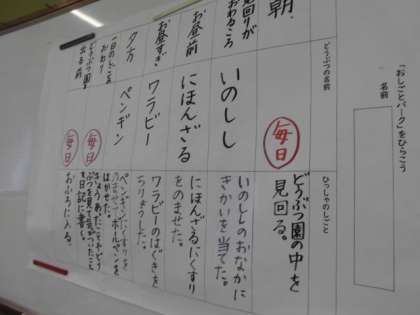 「おしごとパーク」をひらこう
名前
どうぶつの名前
ひっしゃのしごと
朝。
毎日
どうぶつ園の中を
見回る。
見回りが
おわるころ
いのしし
いのししのおなかに
きかいを当てた。
お昼前
にほんざる
にほんざるにくすり
をのませた。
お昼すぎ
ワラビー
ワラビーのはぐきを
ちりょうした。
夕方
ペンギン
ボールペンを
はかせた。
一日のしごとの
おわり
毎日
を日記に書く。
どうぶつ園を
出る前
毎日
おふろに入る。